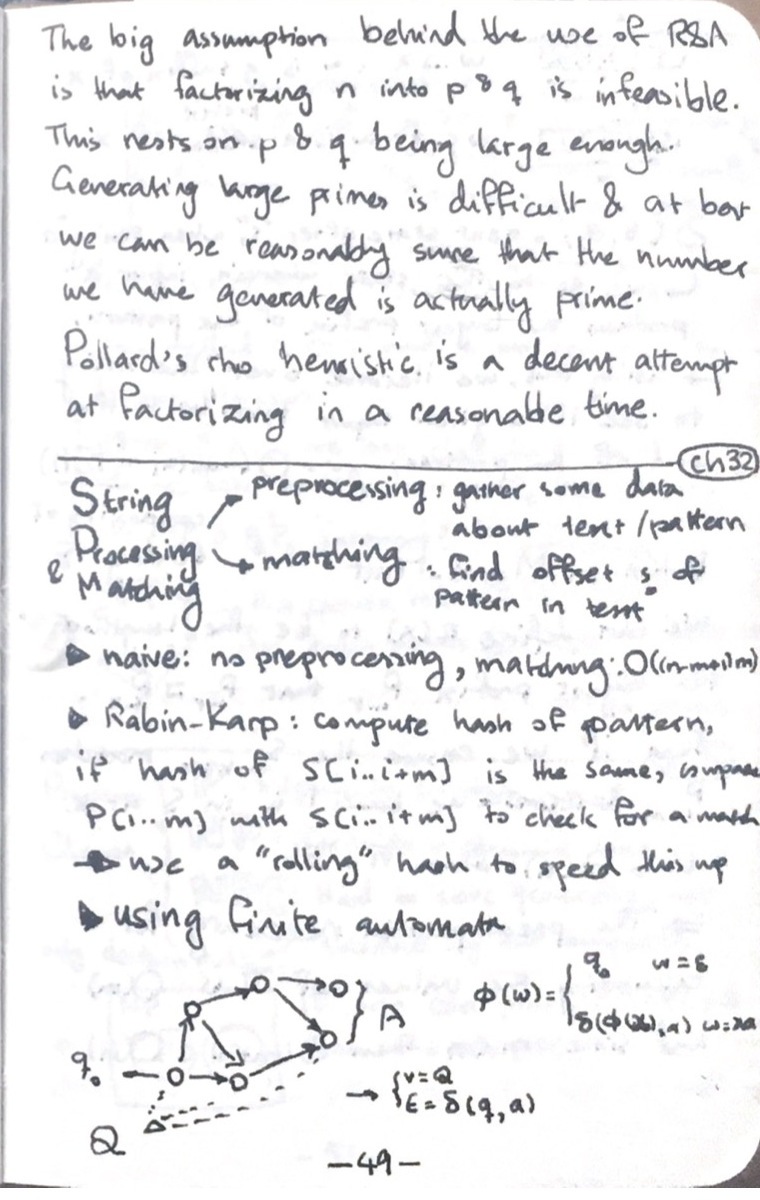 The big assumption behind the use of RSA
is that factorizing n into p & q is infeasible.
This rests on p & q being large enough.
Generating large primes is difficult & at best
we can be reasonably sure that the number
we have generated is actually prime.
Pollard's rho heuristic is a decent attempt
at factorizing in a reasonable time.
ch32
String Processing & Matching
→ preprocessing: gather some data
about text/pattern
→ matching: find offset s of
pattern in text
▶ naive: no preprocessing, matching: O((n-m+1)m)
▶ Rabin-Karp: compute hash of pattern,
if hash of S[i..i+m] is the same, compare
P[1..m] with S[i..i+m] to check for a match
→ use a "rolling" hash to speed this up
▶ using finite automata
φ(w) = { q₀ w = ε
δ(φ(x), a) w = xa
A
q₀
→ { V = Q
E = δ(q, a)
Q
-49-